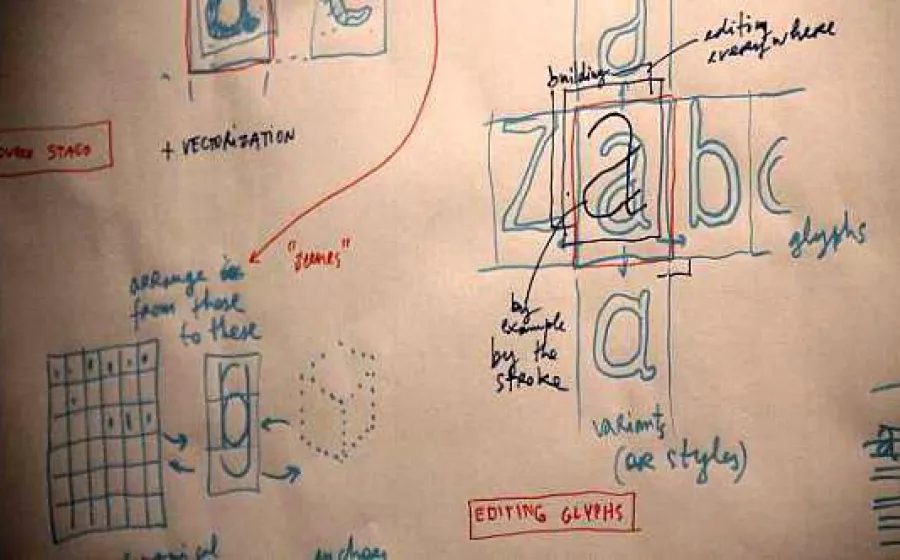 a
d
editing
everywhere
building
+ VECTORIZATION
STAGE
Z a b c
glyphs
arrange
from these
to these
by
example
by the
stroke
g
a
variants
(or styles)
EDITING GLYPHS